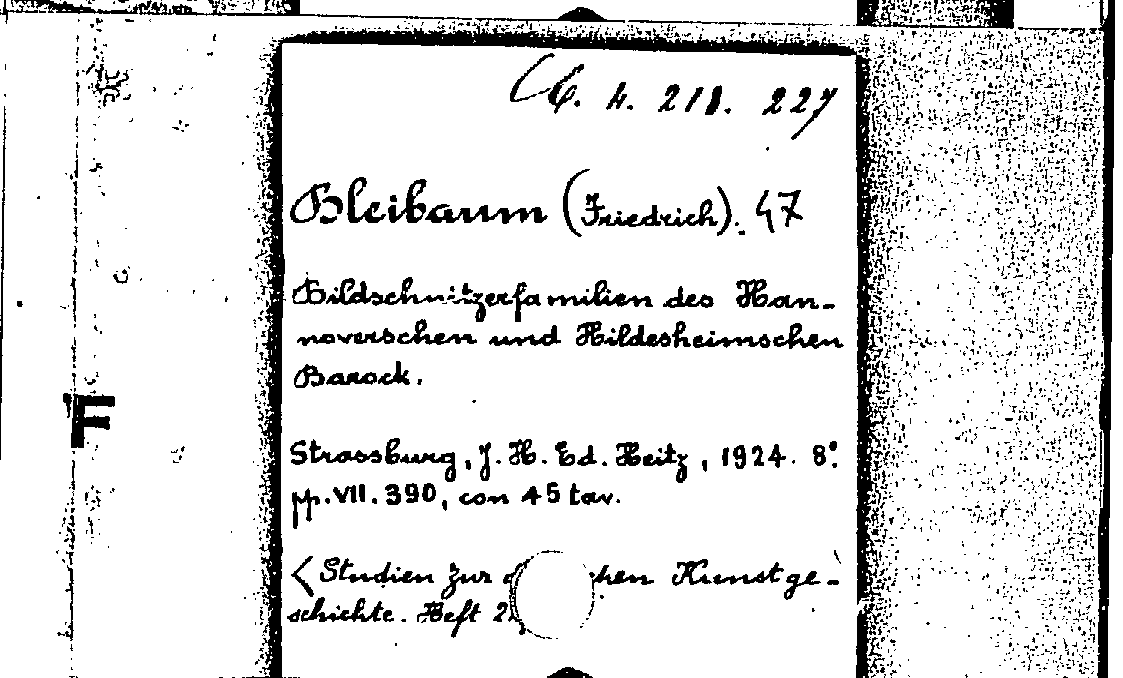 C. 4. 218. 227
Bleibaum (Friedrich). 47
Bildschnitzerfamilien des Han-
noverschen und Hildesheimschen
Barock.
Strassburg, J. H. Ed. Heitz, 1924. 8°.
pp. VII. 390, con 45 tav.
F
<Studien zur Kunstge-
schichte. Heft